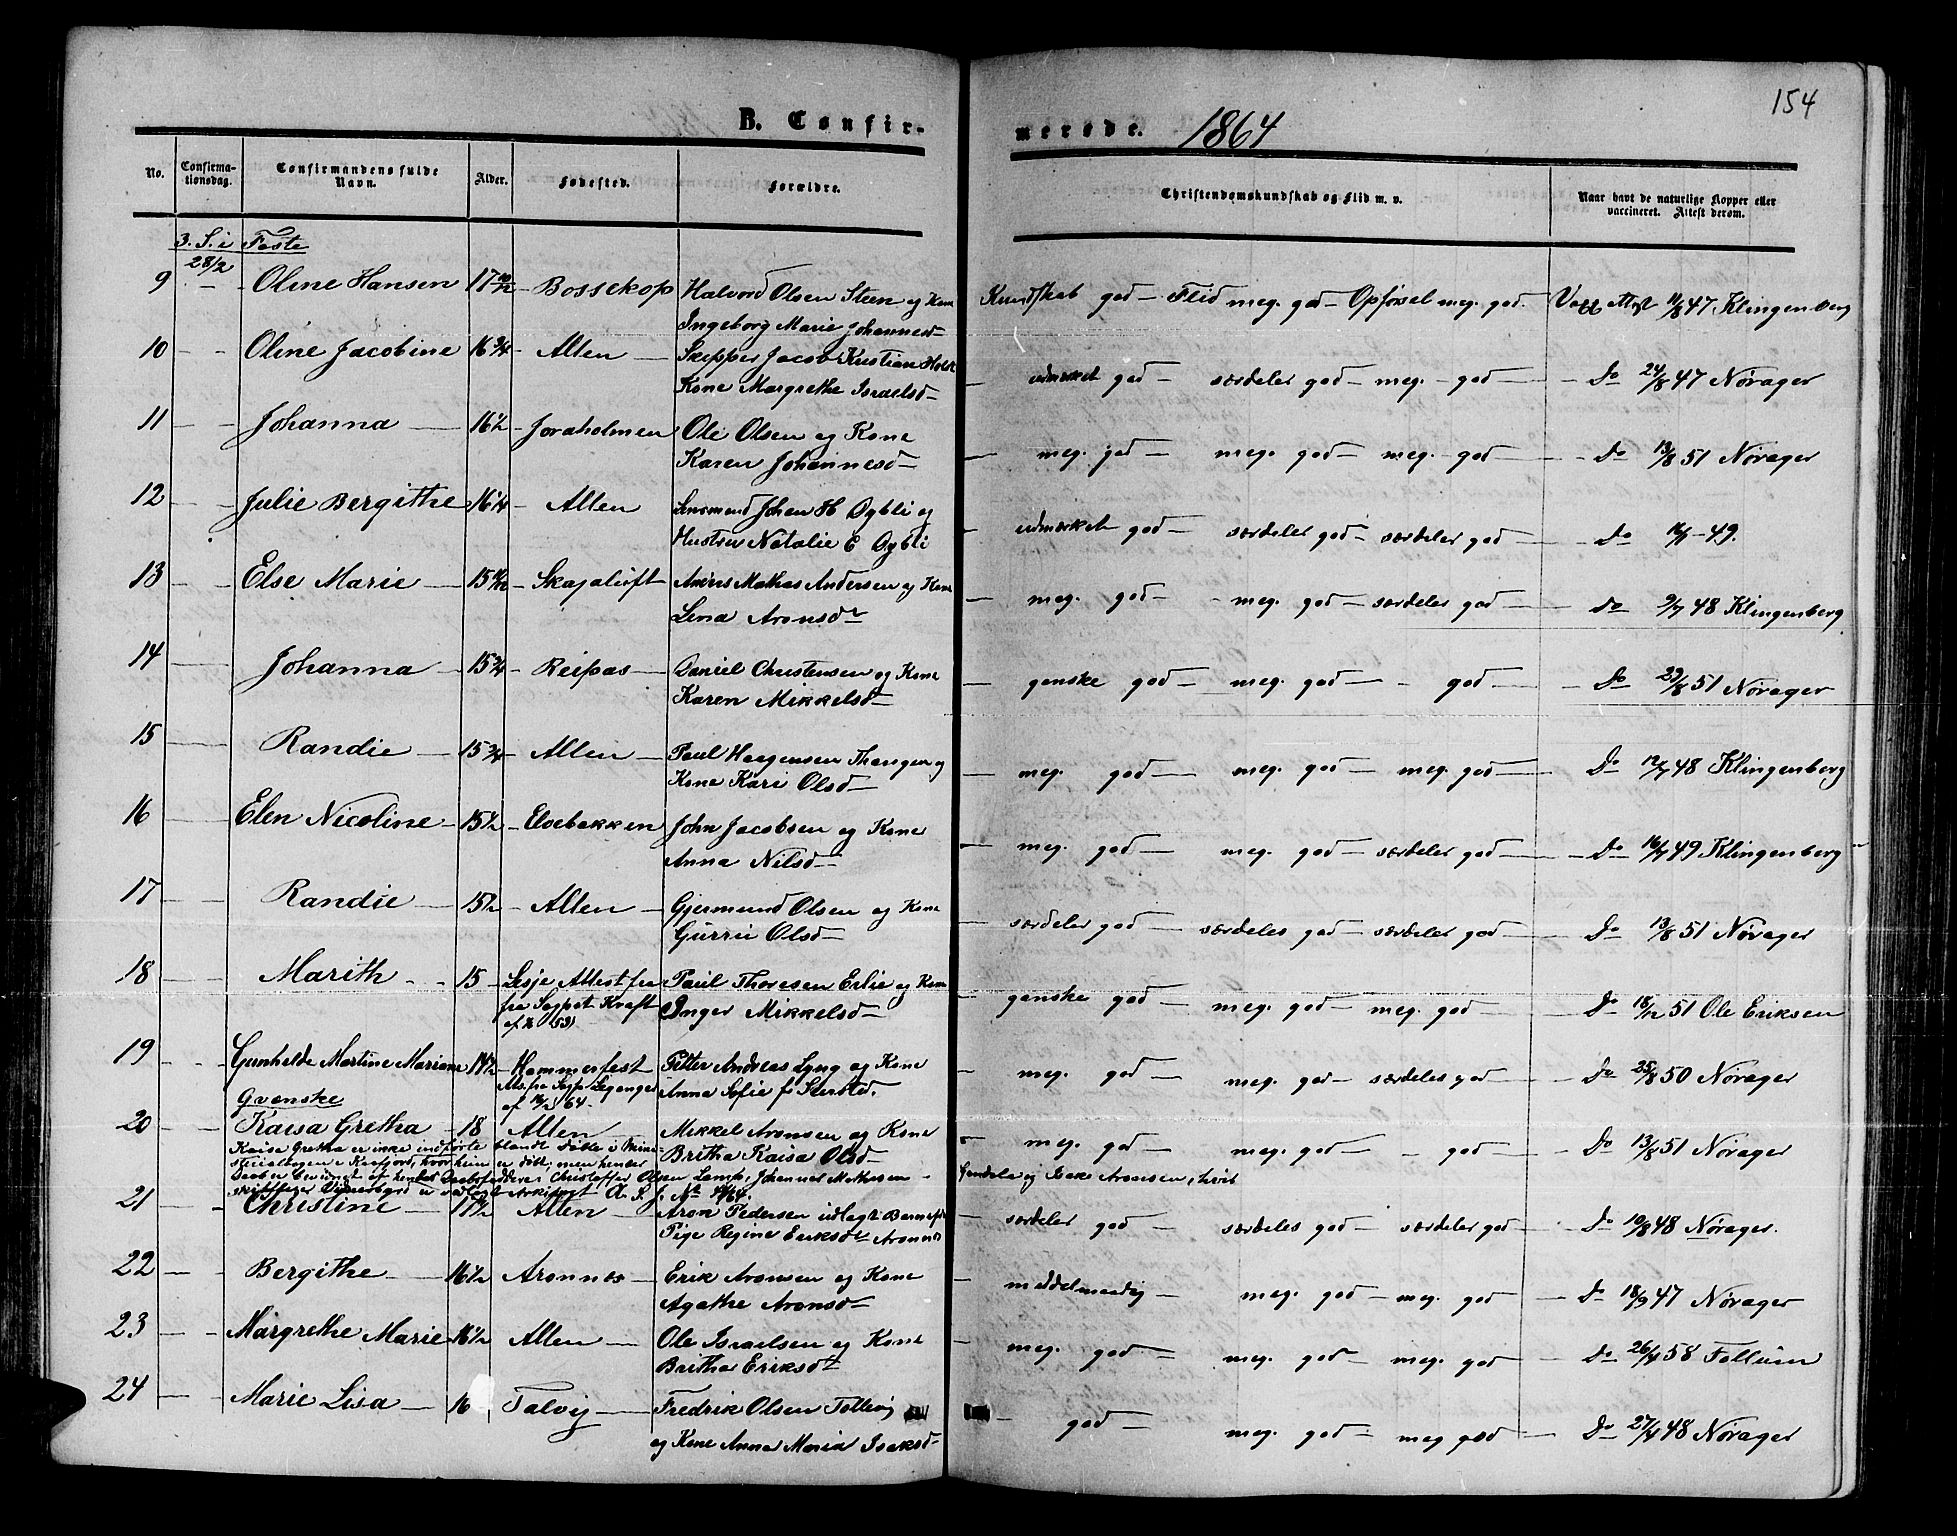 154
B. Confirmerede. 1864
No. Confirmationsdag. Confirmandens fulde Navn. Alder. Fødested. Forældre. Christendomskundskab og Flid m. v. Naar havt de naturlige Kopper eller vaccineret. Attest derom.
3. S. i Faste
28/2
9 Oline Hansen 17 10/12 Bossekop Halvord Olsen Steen og Kone Kundskab god Flid meg. god Opførsel meg. god. Vacc Attest 11/8 47 Klingenberg
Ingeborg Marie Johannesd
10 Oline Jacobine 16 3/4 Alten Skipper Jacob Kristian Holst udmærket god særdeles god meg. god Do 24/8 47 Nørager
Kone Margrethe Israelsd
11 Johanna 16 1/2 Joraholmen Ole Olsen og Kone meg. god meg. god meg. god Do 13/8 51 Nørager
Karen Johannesd
12 Julie Bergithe 16 1/4 Alten Lensmand Johan H Dybli og udmærket god særdeles god særdeles god Do 49.
Hustru Natalie E Dybli
13 Else Marie 15 Skajaluft Mathis Andersen og Kone meg. god meg. god særdeles god Do 9/7 48 Klingenberg
Lena Aronsdr
14 Johanna 15 3/4 Reipas Daniel Christensen og Kone ganske god meg. god god Do 23/8 51 Nørager
Karen Mikkelsd
15 Randie 15 3/4 Alten Paul Haagensen Thangen og meg. god meg. god meg. god Do 12/7 48 Klingenberg
Kone Kari Olsd
16 Elen Nicoline 15 1/2 Elvebakken John Jacobsen og Kone meg. god meg. god særdeles god Do 16/7 49 Klingenberg
Anna Nilsd
17 Randie 15 1/2 Alten Gjermund Olsen og Kone særdeles god særdeles god særdeles god Do 13/8 51 Nørager
Gurrie Olsd
18 Marith 15 Lesje Attest fra Paul Thoresen Erlie og Kone ganske god meg. god meg. god Do 18/12 51 Ole Eriksen
fra Sogpst. Kraft Inger Mikkelsd
19 Gunhilde Martine Mariane 14 1/2 Hammerfest Petter Andreas Lyng og Kone meg. god meg. god særdeles god Do 25/8 50 Nørager
Att. fra Sogp Anna Sofie f.
af 64
Qvenske
20 Kaisa Gretha 18 Alten Mikkel Aronsen og Kone meg. god meg. god god Do 13/8 51 Nørager
Britha Kaisa Olsd
Kaisa Gretha er ikke indførte blandt døbte i Mini-
sterialbogen i Kaafjord, hvor hun er døbt, men hendes
Daab er bevidnet af hendes Daabsfaddere Christoffer Olsen Lampe, Johannes Mathisen
og Isak Aronsen, hvis
21 Christine 17 1/2 Alten Aron Pedersen udlagt Barnefar særdeles god særdeles god særdeles god Do 10/8 48 Nørager.
Pige Regine Eriksdtr Aronnes
22 Bergithe 16 1/2 Aronnes Erik Aronsen og Kone middelmaadig meg. god meg. god Do 18/9 47 Nørager
Agathe Aronsd
23 Margrethe Marie 16 1/2 Alten Ole Israelsen og Kone meg. god meg. god meg. god Do 26/4 58 Follum
Britha Eriksdtr
24 Marie Lisa 16 Talvig Fredrik Olsen god meg. god meg god Do 27/4 48 Nørager
og Kone Anna Maria Isaksd